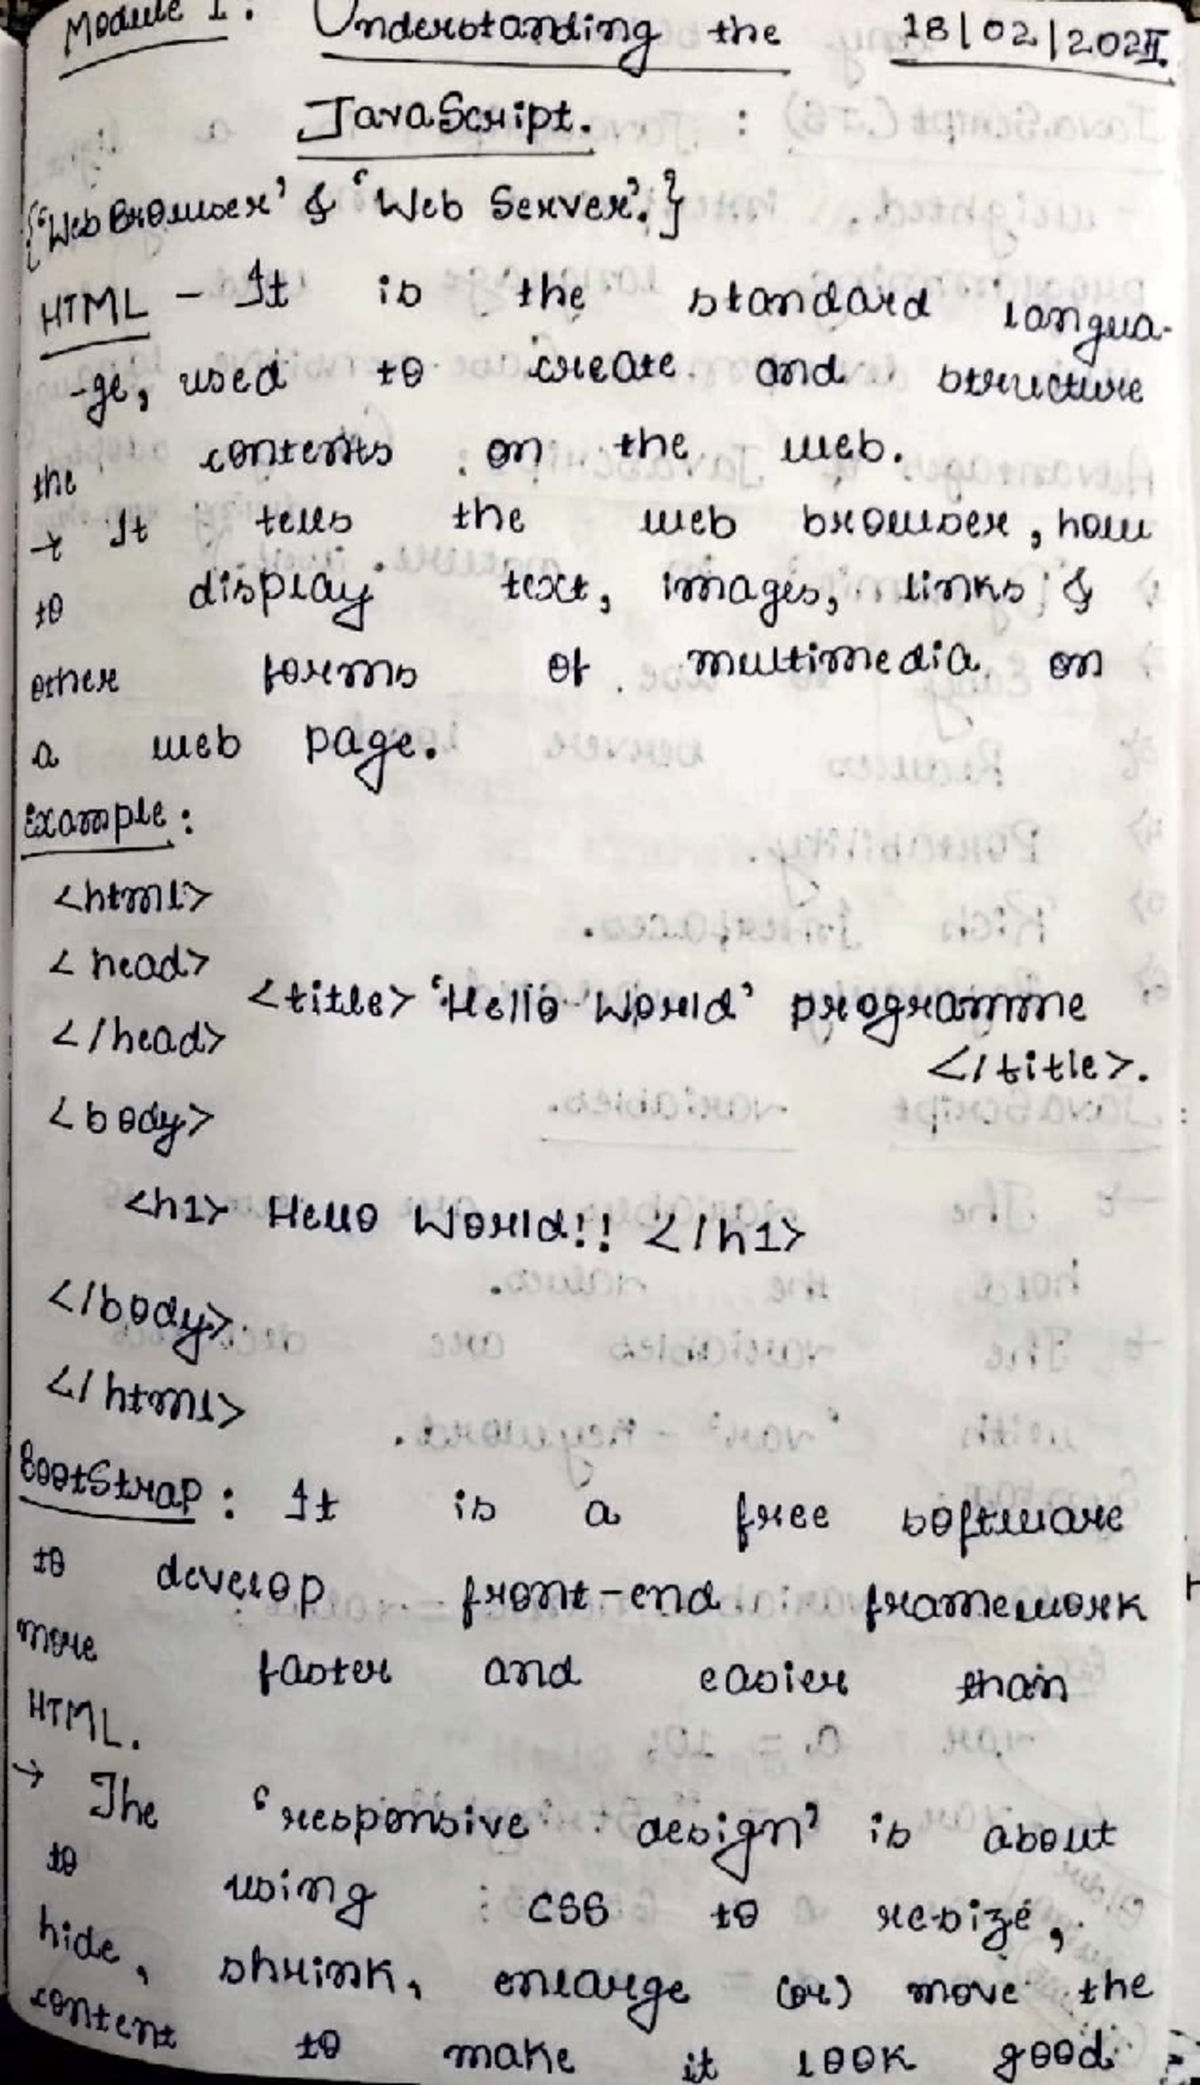 Module 1: Understanding the 18/02/202
JavaScript.
{'Web Browser' & 'Web Server'.}
HTML - It is the standard langua-
-ge, used to create and structure
the contents on the web.
→ It tells the web browser, how
to display text, images, links &
other forms of multimedia on
a web page.
Example:
<html>
<head>
<title> 'Hello World' programme
</head>
</title>.
<body>
<h1> Hello World!! </h1>
</body>
</html>
BootStrap: It is a free software
to develop front-end framework
more faster and easier than
HTML.
→ The 'responsive design' is about
to using CSS to re-size,
hide, shrink, enlarge (or) move the
content to make it look good